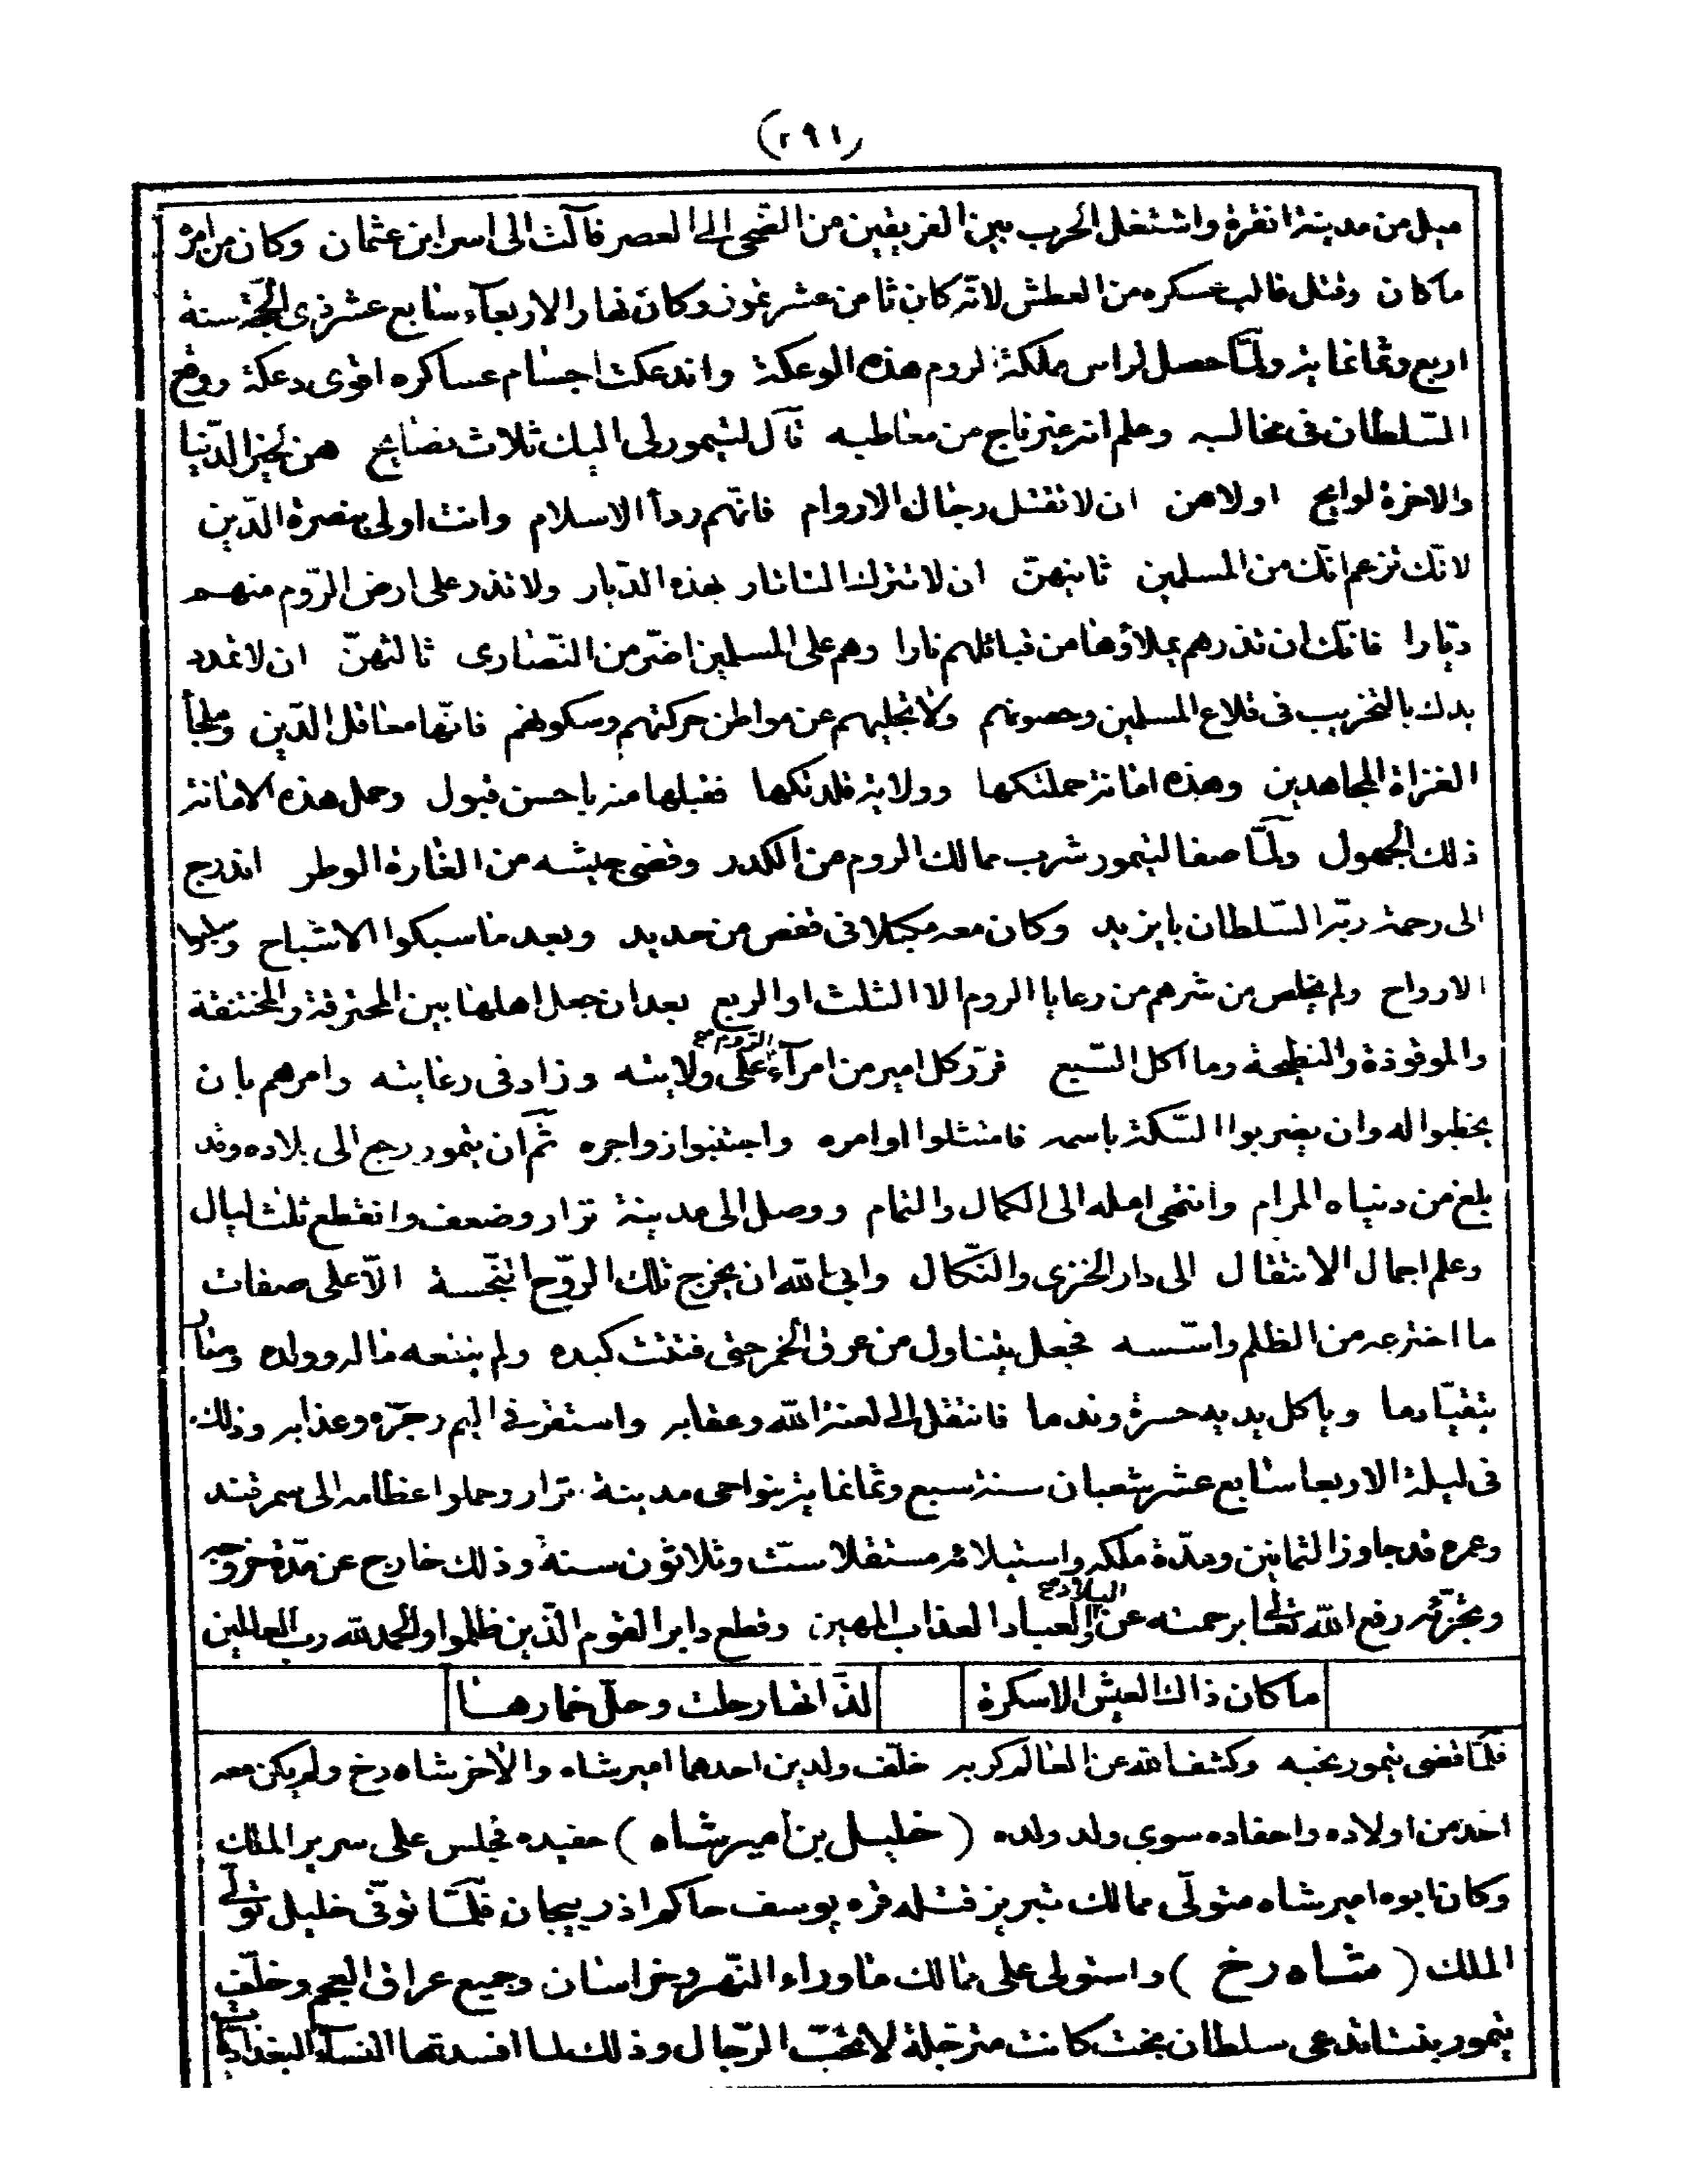 (٢٩١)
ميل من مدينة انقرة واشتغل الحرب بين الفريقين من الضحى الى العصر فآلت الى اسر ابن عثمان وكان من امره
ما كان وقتل غالب عسكره من العطش لانه كان ثامن عشر تموز وكان نهار الاربعآء سابع عشر ذى الحجّة سنة
اربع وثمانمايه ولمّا حصل لراس مملكة الروم هذه الوعكة واندعكت اجسام عساكره اقوى دعكة ووقع
السّلطان فى مخالبه وعلم انه غير ناج من معاطبه قال لتيمور لى اليك ثلاث نصايح هن لخير الدّنيا
والاخرة لوايح اولاهن ان لا تقتل رجال الاروام فانّهم ردأ الاسلام وانت اولى بنصرة الدّين
لانّك تزعم انّك من المسلمين ثانيهنّ ان لا تترك التاتار بهذه الدّيار ولا تذر على ارض الرّوم منهم
ديّارا فانّك ان تذرهم يملاؤها من قبائلهم نارا وهم على المسلمين اضرّ من النّصارى ثالثهنّ ان لا تمدد
يدك بالتخريب فى قلاع المسلمين وحصونهم ولا تجليهم عن مواطن حركتهم وسكونهم فانّها معاقل الدّين وملجأ
الغزاة المجاهدين وهذه امانة حملتكها وولاية قلدتكها فقبلها منه باحسن قبول وحمل هذه الامانة
ذلك الجهول ولمّا صفا لتيمور شرب ممالك الروم من الكدر وقضى جيشه من الغارة الوطر اندرج
الى رحمة ربّه السّلطان بايزيد وكان معه مكبّلا فى قفص من حديد وبعد ما سبكوا الاشباح وسلبوا
الارواح ولم يخلص من شرهم من رعايا الروم الا الثلث او الربع بعد ان جعل اهلها بين المحترقة والمختنقة
والموقوذة والنطيحة وما اكل السّبع قرّر كل امير من امرآء الرّوم صح على ولايته وزاد فى رعايته وامرهم بان
يخطبوا له وان يضربوا السّكة باسمه فامتثلوا اوامره واجتنبوا زواجره ثمّ ان تيمور رجع الى بلاده وقد
بلغ من دنياه المرام وانتهى امله الى الكمال والتمام ووصل الى مدينة تزار وضعف وانقطع ثلث ليال
وعلم اجمال الانتقال الى دار الخزى والنّكال وابى الله ان يخرج تلك الرّوح النّجسة الّا على صفات
ما اخترعه من الظلم واسّسه فجعل يتناول من عرق الخمر حتى فتتت كبده ولم ينفعه ماله وولده وصار
يتقيّا دما وياكل يديه حسرة وندما فانتقل الى لعنة الله وعقابه واستقر فى اليم رجزه وعذابه وذلك
فى ليلة الاربعا سابع عشر شعبان سنة سبع وثمانماية بنواحى مدينة تزار وحملوا عظامه الى سمرقند
وعمره قد جاوز الثمانين ومدّة ملكه واستيلائه مستقلا ستّ وثلاثون سنة وذلك خارج عن مدّة خروجه
وتجزّئه رفع الله تعالى برحمته عن البلاد صح والعباد العذاب المهين وقطع دابر القوم الّذين ظلموا والحمد لله ربّ العالمين
ما كان ذاك العيش الا سكرة لذّاتها رحلت وحلّ خمارها
فلمّا قضى تيمور نحبه وكشف الله عن العالم كربه خلّف ولدين احدهما اميرشاه والآخر شاه رخ ولم يكن معه
احد من اولاده واحفاده سوى ولد ولده (خليل بن اميرشاه) حفيده فجلس على سرير الملك
وكان ابوه اميرشاه متولّى ممالك تبريز قتله قره يوسف حاكم اذربيجان فلمّا توفّى خليل تولى
الملك (شاه رخ) واستولى على ممالك ماوراء النّهر وخراسان وجميع عراق العجم وخلّف
تيمور بنتا تدعى سلطان بخت كانت مترجلة لا تحبّ الرّجال وذلك لما افسدتها النسآء البغداديات